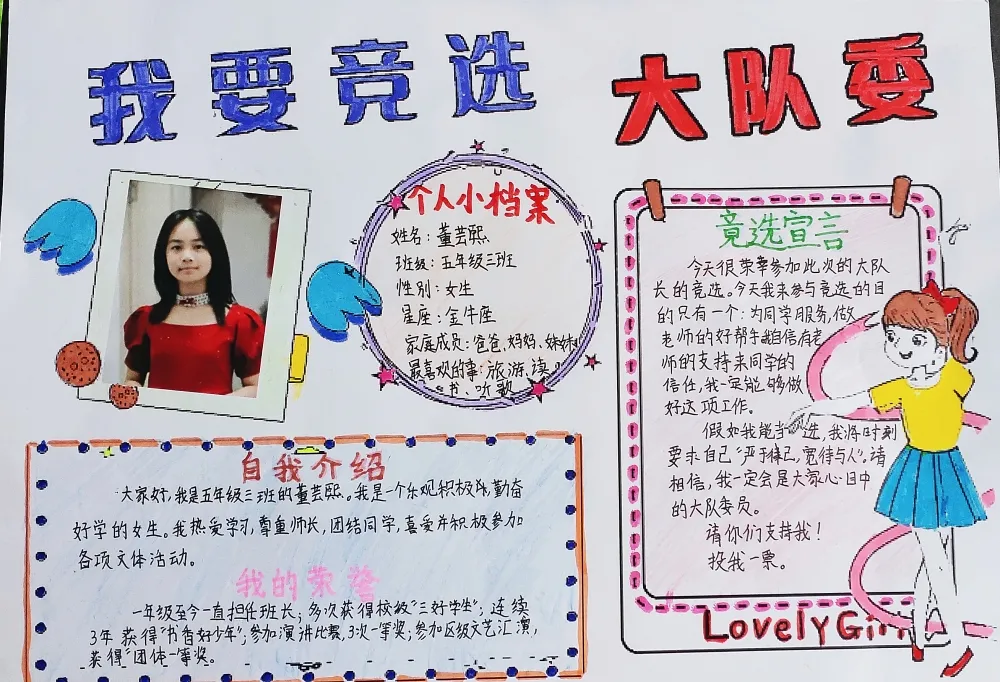 我要竞选 大队委
个人小档案
姓名：董芸熙
班级：五年级三班
性别：女生
星座：金牛座
家庭成员：爸爸、妈妈、妹妹
最喜欢的事：旅游、读
书、听歌
自我介绍
大家好，我是五年级三班的董芸熙。我是一个乐观积极向上，勤奋
好学的女生。我热爱学习，尊重师长，团结同学，喜爱并积极参加
各项文体活动。
我的荣誉
一年级至今一直担任班长；多次获得校级“三好学生”；连续
3年获得“书香好少年”；参加演讲比赛，3次一等奖；参加区级文艺汇演，
获得“团体一等奖。
竞选宣言
今天很荣幸参加此次的大队
长的竞选。今天我来参与竞选的目
的只有一个：为同学服务，做
老师的好帮手我自信有老
师的支持来同学的
信任，我一定能够做
好这项工作。
假如我能当选，我将时刻
要求自己“严于律己，宽待与人”。请
相信，我一定会是大家心目中
的大队委员。
请你们支持我！
投我一票。
Lovely Girl